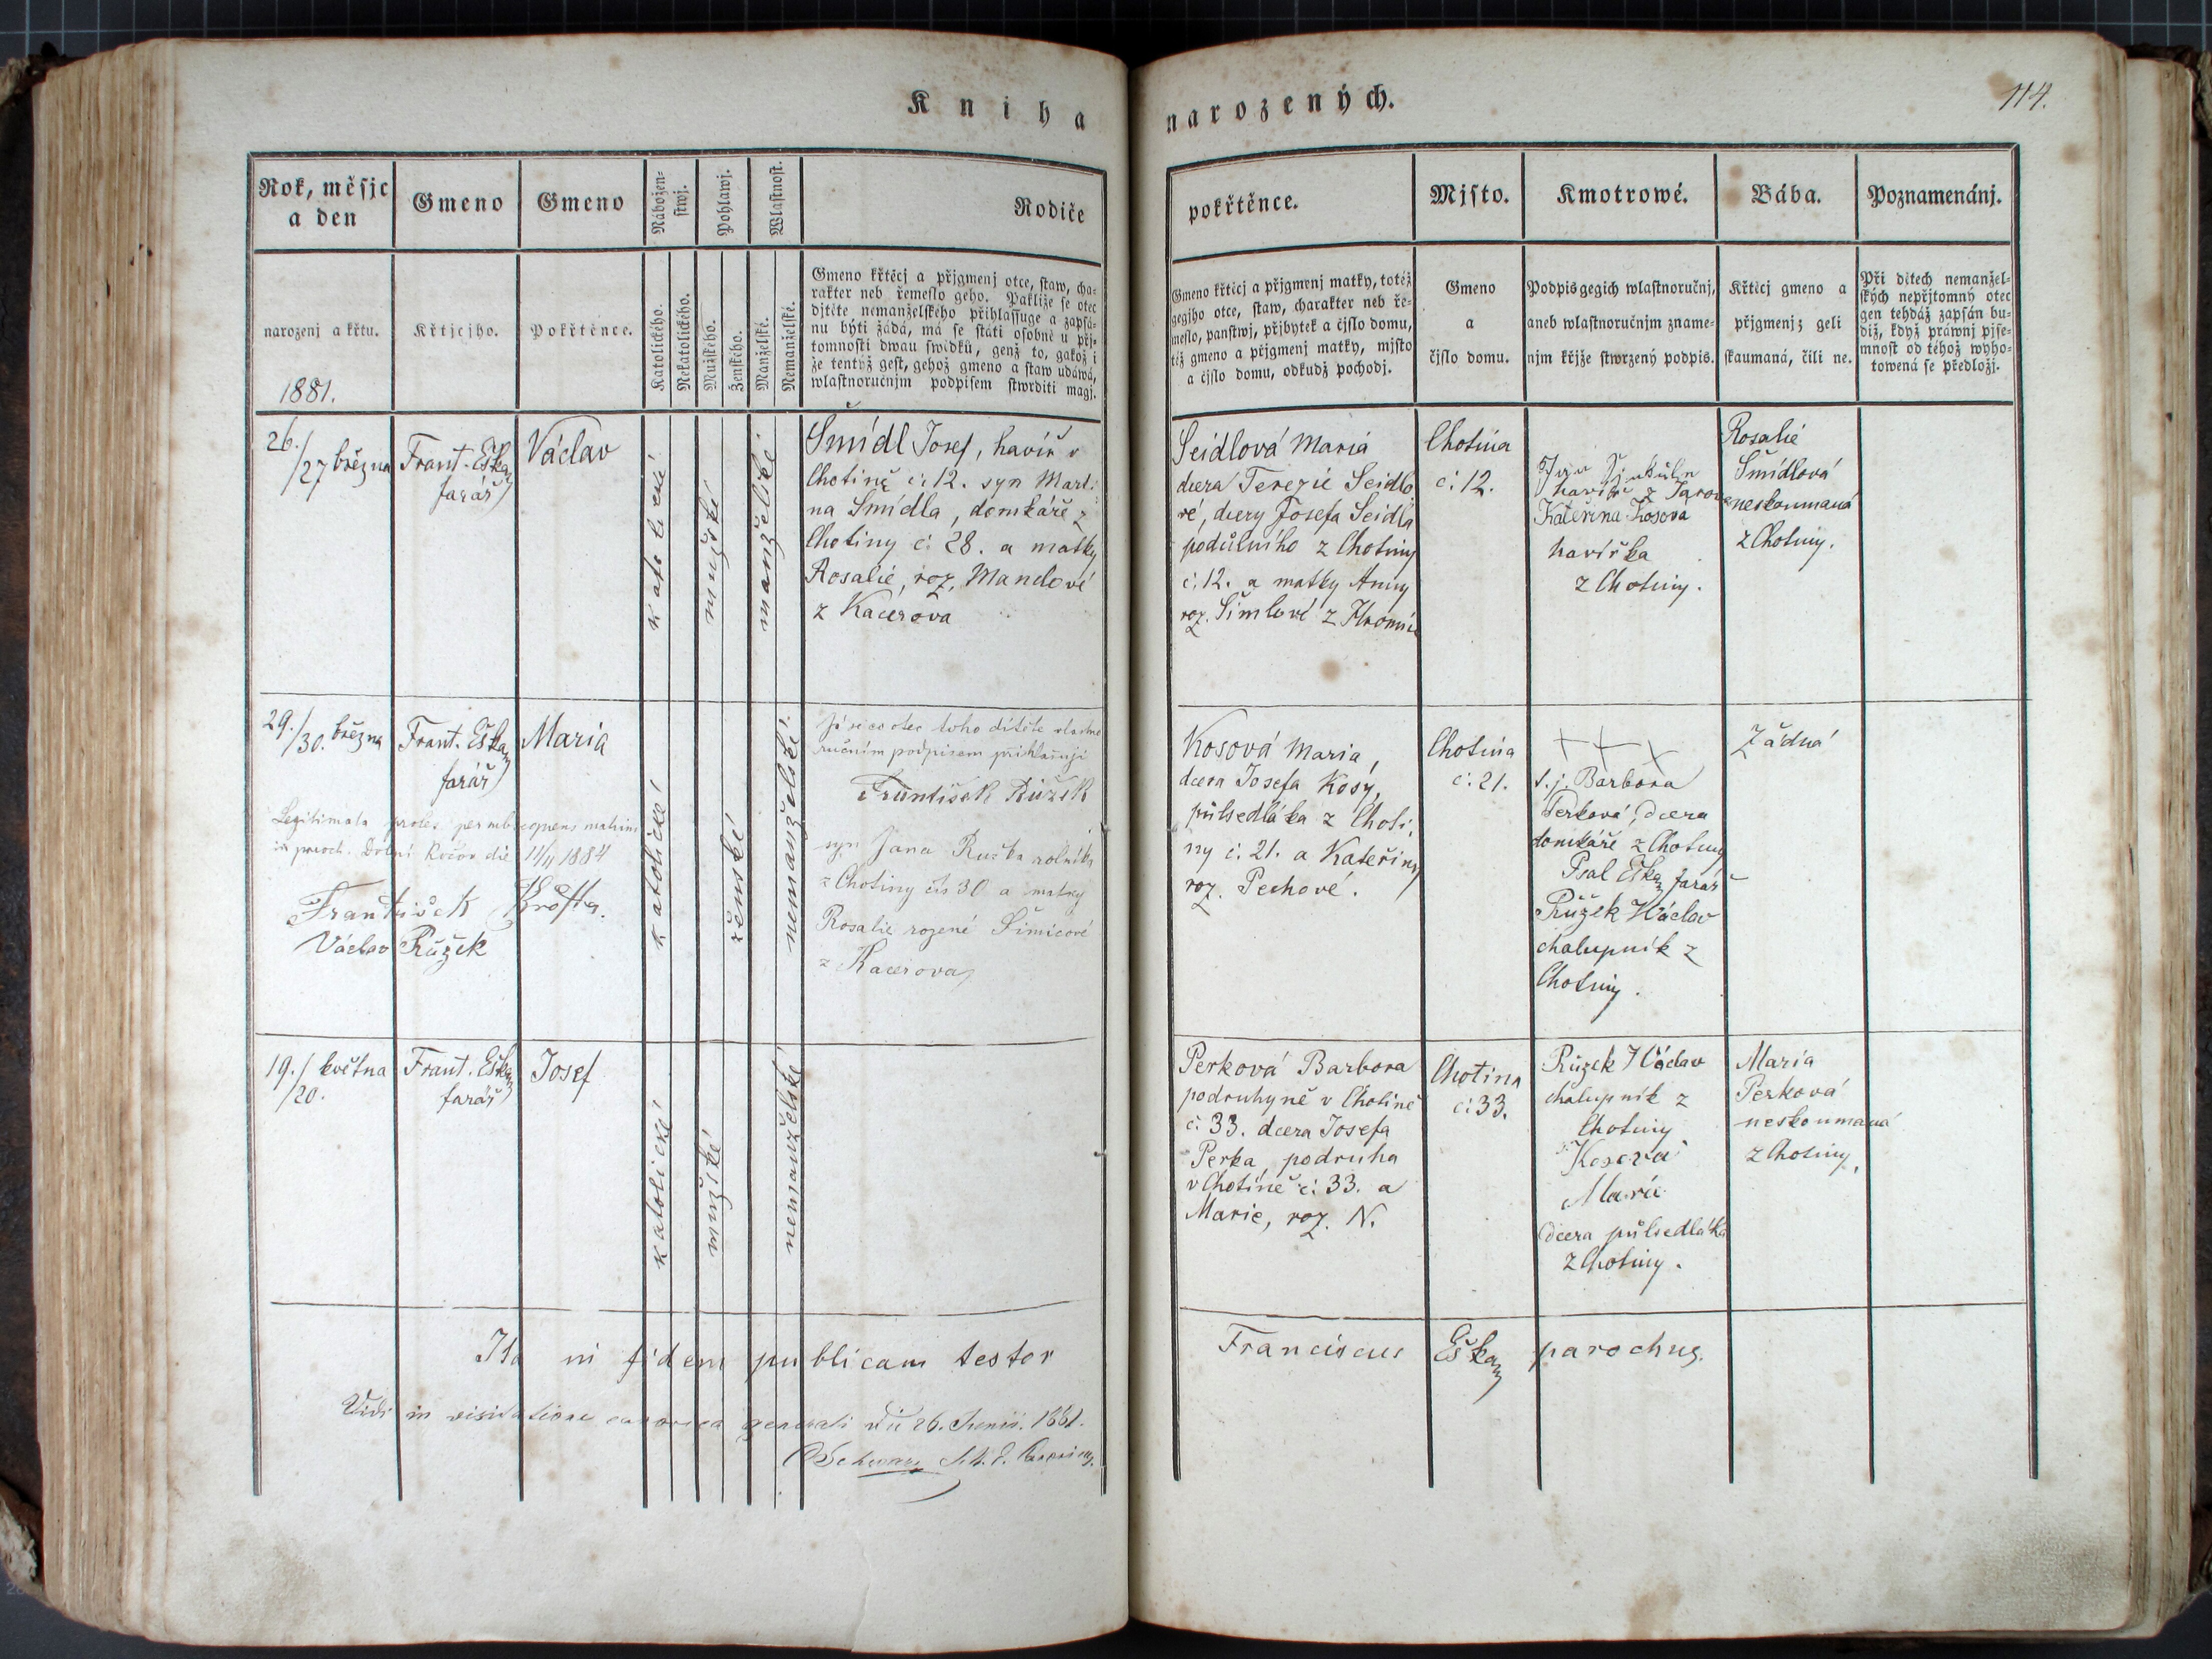 Kniha
narozených.
114.
Rok, měsjc
a den
Gmeno
Gmeno
Nábožen-
stwj.
Pohlawj.
Wlastnost.
Rodiče
pokřtěnce.
Mjsto.
Kmotrowé.
Bába.
Poznamenánj.
narozenj a křtu.
1881.
Křtjcjho.
Pokřtěnce.
Katolického.
Nekatolického.
Mužského.
Ženského.
Manželské.
Nemanželské.
Gmeno křtěcj a přjgmenj otce, staw, cha-
rakter neb řemeslo geho. Pakliže se otec
djtěte nemanželského přihlassuge a zapsá-
nu býti žádá, má se státi osobně u přj-
tomnosti dwau swědků, genž to, gakož i
že tentýž gest, gehož gmeno a staw udáwá,
wlastnoručnjm podpisem stwrditi magj.
Gmeno křtěcj a přjgmenj matky, totéž
gegjho otce, staw, charakter neb ře-
meslo, panstwj, přjbytek a čjslo domu,
též gmeno a přjgmenj matky, mjsto
a čjslo domu, odkudž pocházj.
Gmeno
a
čjslo domu.
Podpis gegich wlastnoručnj,
aneb wlastnoručnjm zname-
njm křjže stwrzený podpis.
Křtěcj gmeno a
přjgmenj; geli
skaumaná, čili ne.
Při djtech nemanžel-
ských nepřjtomný otec
gen tehdáž zapsán bu-
diž, když práwnj pjse-
mnost od téhož wyho-
towená se předložj.
26./
/27 března
Frant. Eška
farář
Václav
katolické
mužské
manželské
Šmídl Josef, havíř v
Chotině č. 12. syn Marti-
na Šmídla, domkáře z
Chotiny č. 28. a matky
Rosalie, roz. Mandové
z Kacerova
Seidlová Maria
dcera Terezie Seidlo
vé, dcery Josefa Seidla
podůlního z Chotiny
č. 12. a matky Anny
roz. Šimlové z Hromic
Chotina
č. 12.
Jan
havíř z
Kateřina Kosova
havířka
z Chotiny.
Rosalie
Šmídlová
neskoumaná
z Chotiny.
29./
/30. března
Frant. Eška
farář
Maria
Legitimata proles per subsequens matrim
in paroch. Dolní die 11/11 1884
František Krofta.
Václav Růžek
katolické
ženské
nemanželské.
Já se co otec toho dítěte vlastno
ručním podpisem přihlašuji
František Růžek
syn Jana Růžka rolníka
z Chotiny čís 30 a matky
Rosalie rozené Šimicové
z Kacerova
Kosová Maria,
dcera Josefa Kosy,
půlsedláka z Choti-
ny č. 21. a Kateřiny
roz. Pechové.
Chotina
č. 21.
+ + +
t. j. Barbora
Perková, dcera
domkáře z Chotiny
Psal Eška farář
Růžek Wáclav
chalupník z
Chotiny.
Žádná
19./ května
/20.
Frant. Eška
farář
Josef
katolické
mužské
nemanželské
Perková Barbora
podruhyně v Chotině
č. 33. dcera Josefa
Perka, podruha
v Chotině č. 33. a
Marie, roz. N.
Chotina
č. 33.
Růzek Wáclav
chalupník z
Chotiny
Kosová
Marie
dcera půlsedláka
z Chotiny.
Maria
Perková
neskoumaná
z Chotiny.
Ita in fidem publicam testor
Franciscus Eška parochus.
Vidi in visitatione canonica generali die 26. Junii. 1881.
Schwarz